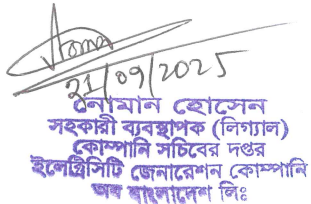 21/09/2025
নোমান হোসেন
সহকারী ব্যবস্থাপক (লিগ্যাল)
কোম্পানি সচিবের দপ্তর
ইলেট্রিসিটি জেনারেশন কোম্পানি
অব বাংলাদেশ লিঃ